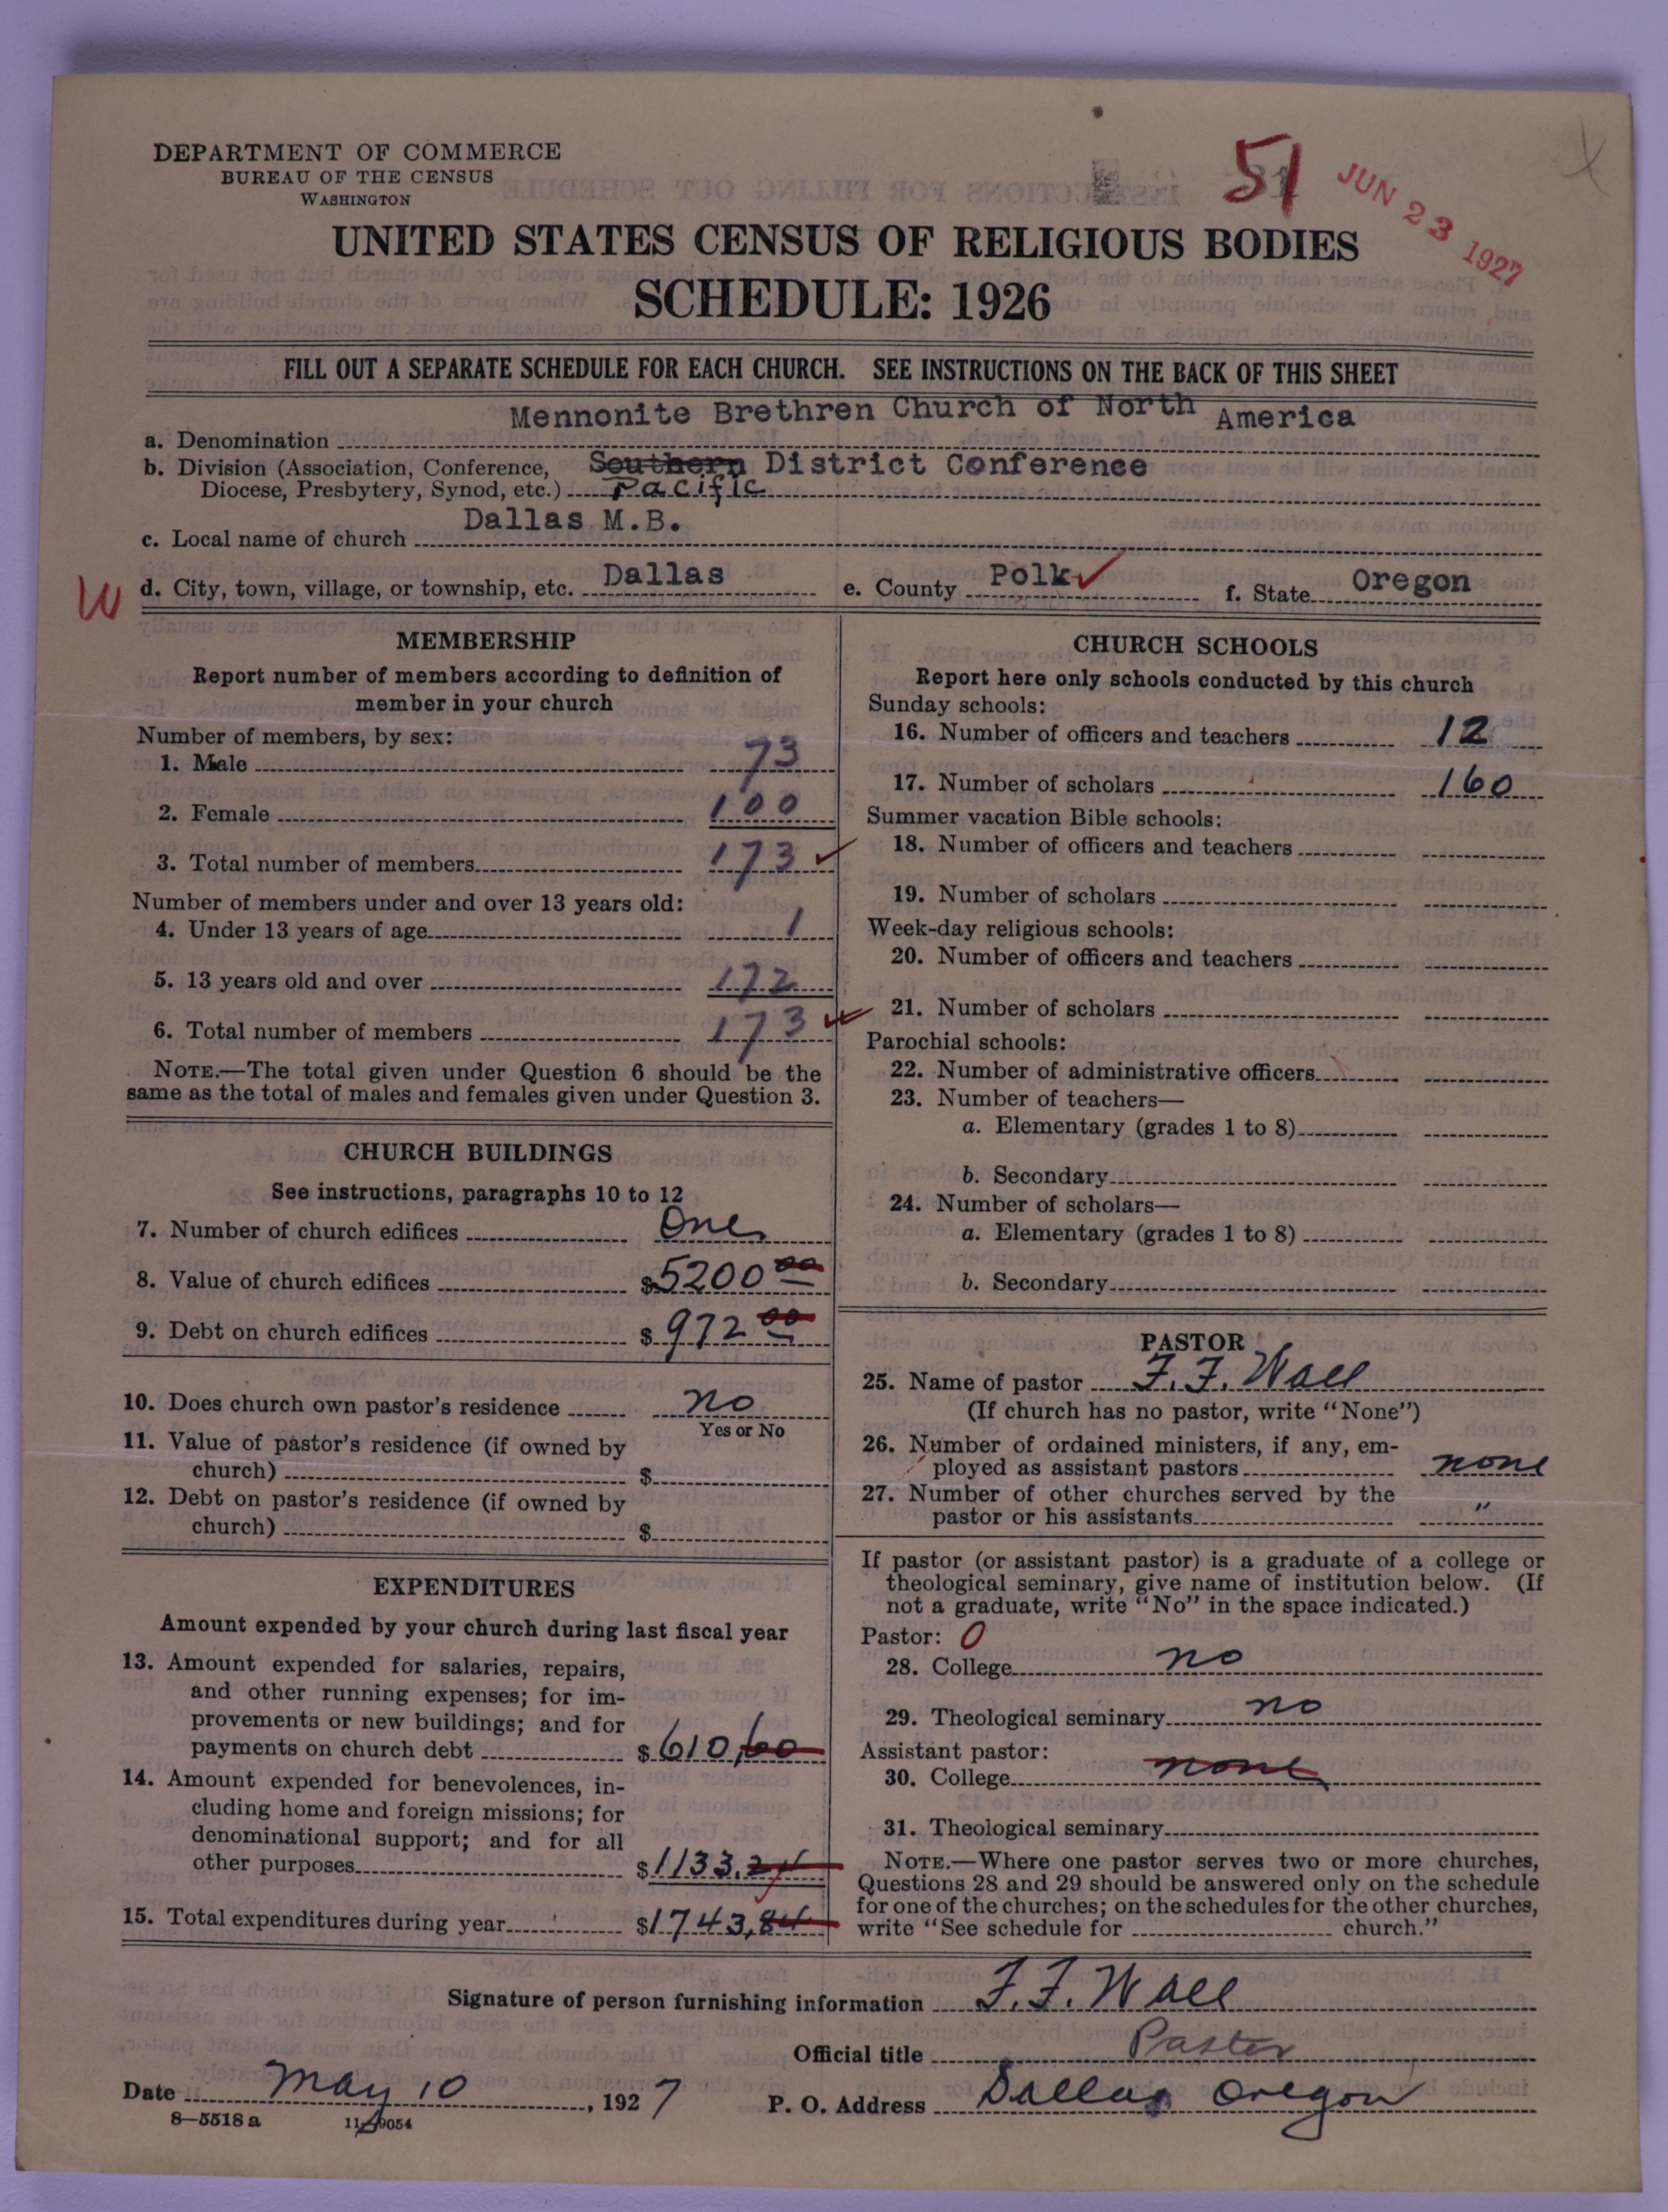 DEPARTMENT OF COMMERCE
BUREAU OF THE CENSUS
WASHINGTON
51
JUN 23 1927
UNITED STATES CENSUS OF RELIGIOUS BODIES
SCHEDULE: 1926
FILL OUT A SEPARATE SCHEDULE FOR EACH CHURCH. SEE INSTRUCTIONS ON THE BACK OF THIS SHEET
a. Denomination Mennonite Brethren Church of North America
b. Division (Association, Conference, Southern District Conference
Diocese, Presbytery, Synod, etc.) Pacific
c. Local name of church Dallas M.B.
W d. City, town, village, or township, etc. Dallas e. County Polk f. State Oregon
MEMBERSHIP
Report number of members according to definition of
member in your church
Number of members, by sex:
1. Male 73
2. Female 100
3. Total number of members 173
Number of members under and over 13 years old:
4. Under 13 years of age 1
5. 13 years old and over 172
6. Total number of members 173
NOTE.—The total given under Question 6 should be the
same as the total of males and females given under Question 3.
CHURCH BUILDINGS
See instructions, paragraphs 10 to 12
7. Number of church edifices One
8. Value of church edifices $5200 00
9. Debt on church edifices $ 972 00
10. Does church own pastor's residence no
Yes or No
11. Value of pastor's residence (if owned by
church) $
12. Debt on pastor's residence (if owned by
church) $
EXPENDITURES
Amount expended by your church during last fiscal year
13. Amount expended for salaries, repairs,
and other running expenses; for im-
provements or new buildings; and for
payments on church debt $ 610,60
14. Amount expended for benevolences, in-
cluding home and foreign missions; for
denominational support; and for all
other purposes $1133.24
15. Total expenditures during year $1743,84
CHURCH SCHOOLS
Report here only schools conducted by this church
Sunday schools:
16. Number of officers and teachers 12
17. Number of scholars 160
Summer vacation Bible schools:
18. Number of officers and teachers
19. Number of scholars
Week-day religious schools:
20. Number of officers and teachers
21. Number of scholars
Parochial schools:
22. Number of administrative officers
23. Number of teachers—
a. Elementary (grades 1 to 8)
b. Secondary
24. Number of scholars—
a. Elementary (grades 1 to 8)
b. Secondary
PASTOR
25. Name of pastor F. F. Wall
(If church has no pastor, write "None")
26. Number of ordained ministers, if any, em-
ployed as assistant pastors none
27. Number of other churches served by the
pastor or his assistants "
If pastor (or assistant pastor) is a graduate of a college or
theological seminary, give name of institution below. (If
not a graduate, write "No" in the space indicated.)
Pastor: 0
28. College no
29. Theological seminary no
Assistant pastor:
30. College none
31. Theological seminary
NOTE.—Where one pastor serves two or more churches,
Questions 28 and 29 should be answered only on the schedule
for one of the churches; on the schedules for the other churches,
write "See schedule for church."
Signature of person furnishing information F. F. Wall
Official title Pastor
Date May 10, 1927 P. O. Address Dallas Oregon
8—5518 a